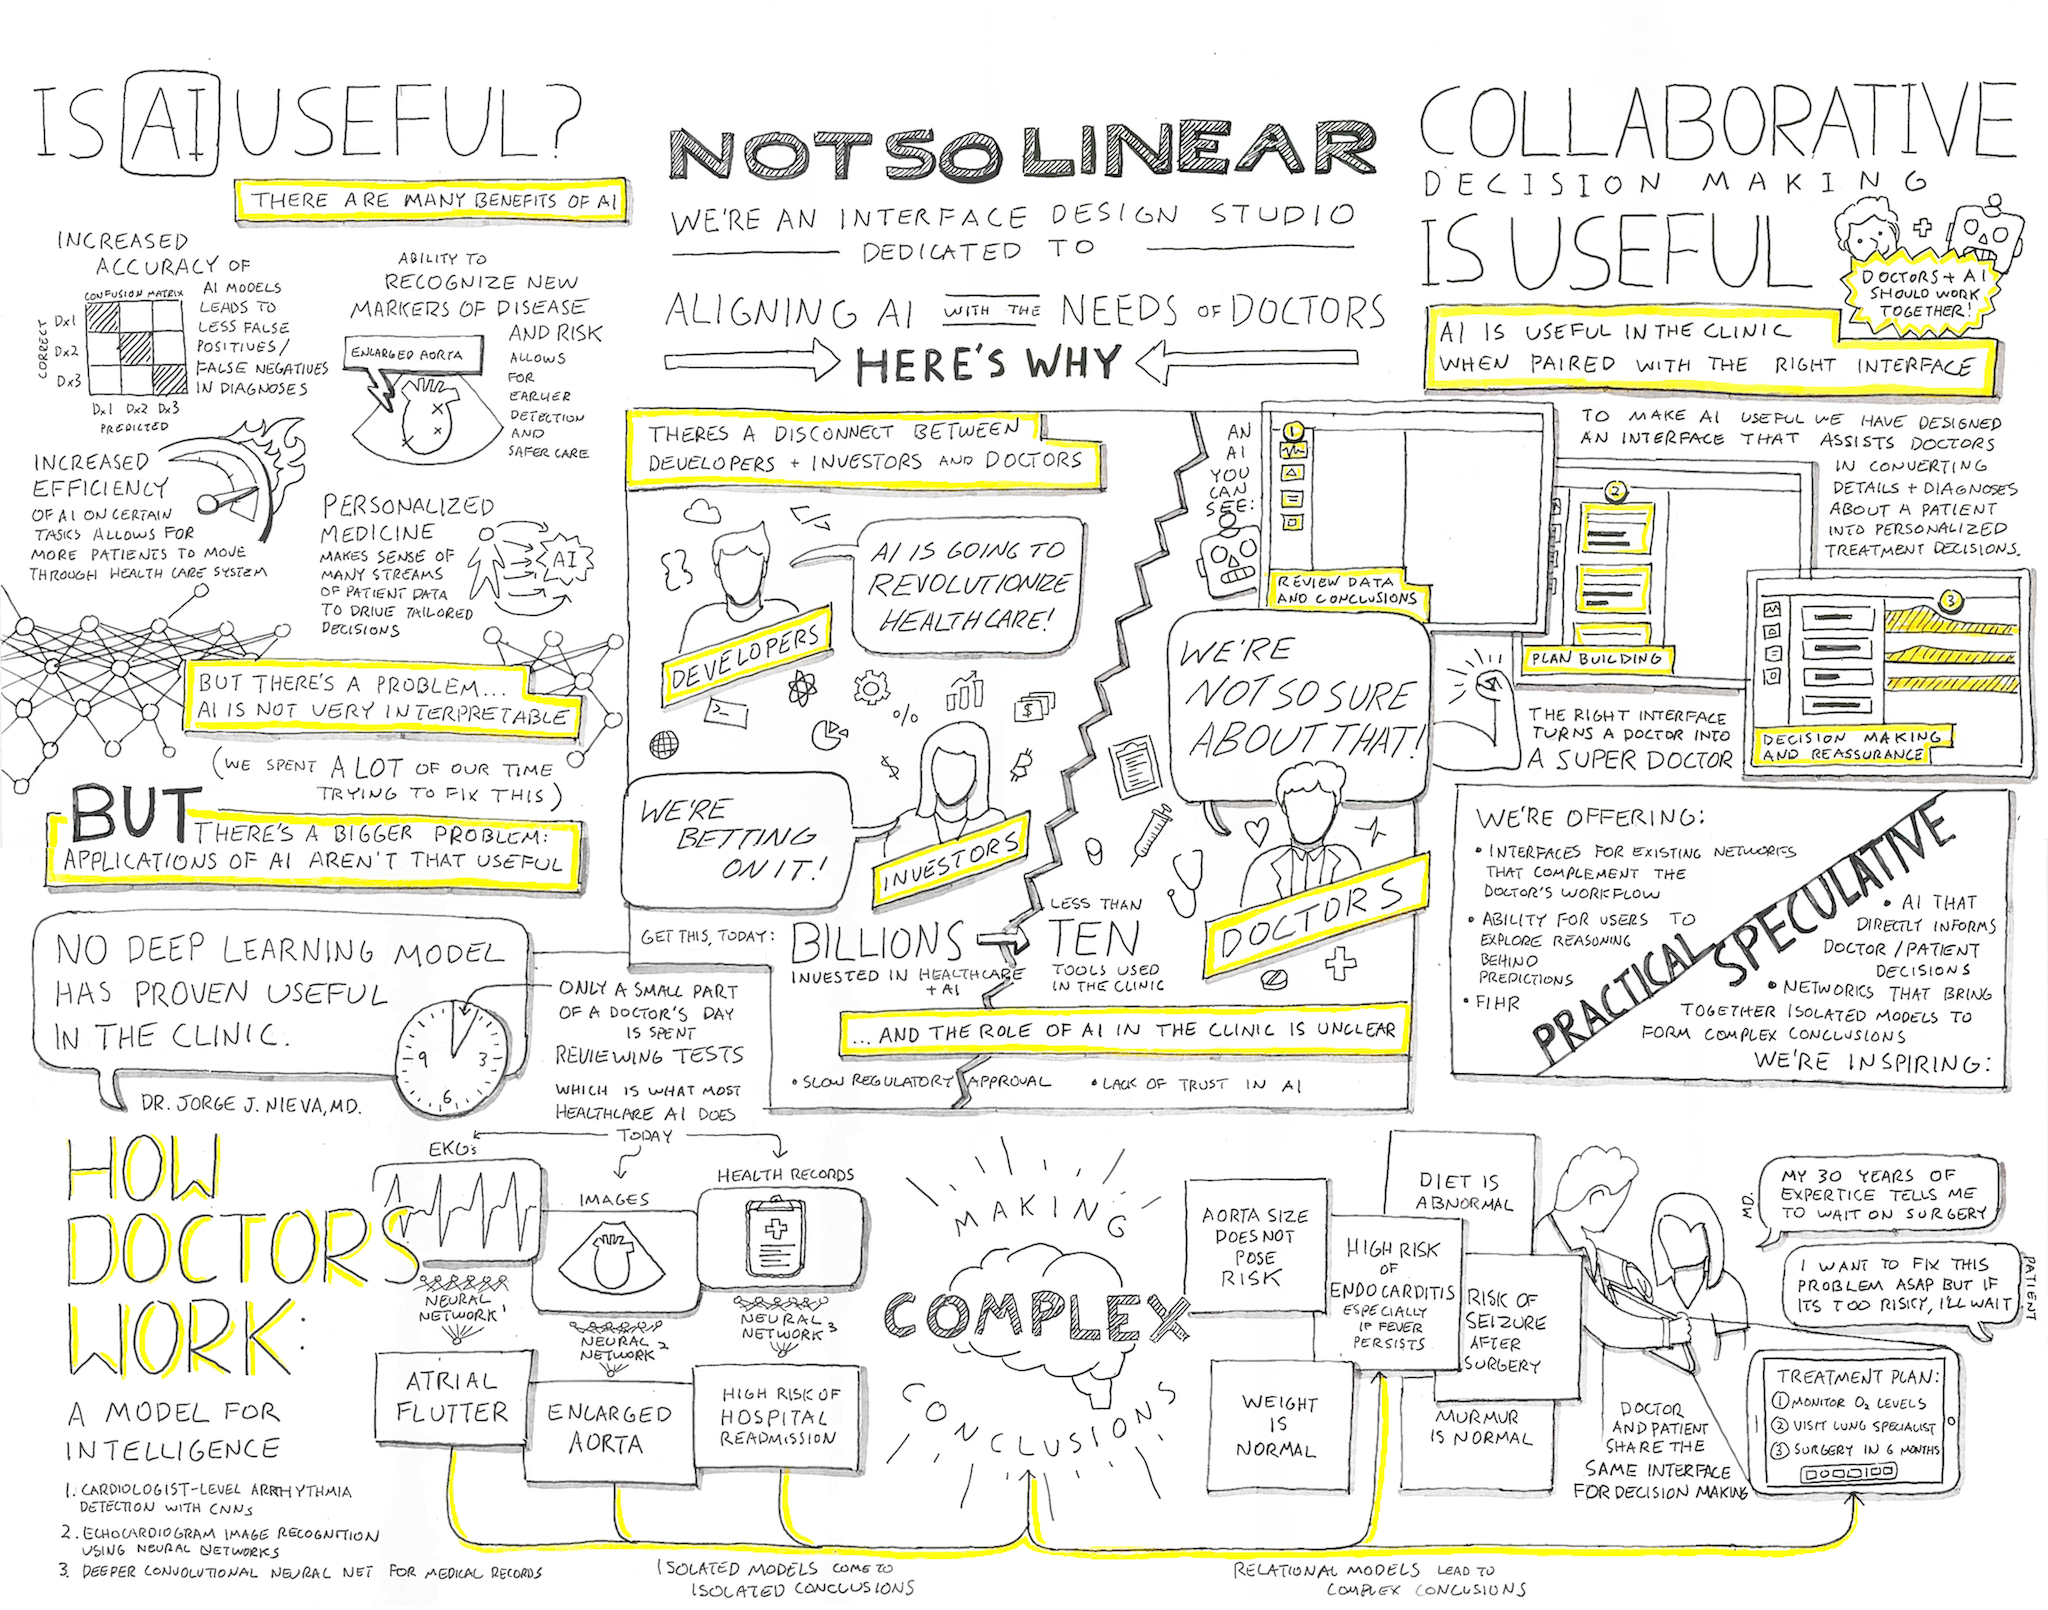 IS AI USEFUL?
THERE ARE MANY BENEFITS OF AI
INCREASED
ACCURACY OF
AI MODELS
LEADS TO
LESS FALSE
POSITIVES/
FALSE NEGATIVES
IN DIAGNOSES
CONFUSION MATRIX
CORRECT
Dx1
Dx2
Dx3
Dx1 Dx2 Dx3
PREDICTED
ABILITY TO
RECOGNIZE NEW
MARKERS OF DISEASE
AND RISK
ALLOWS
FOR
EARLIER
DETECTION
AND
SAFER CARE
ENLARGED AORTA
INCREASED
EFFICIENCY
OF AI ON CERTAIN
TASKS ALLOWS FOR
MORE PATIENTS TO MOVE
THROUGH HEALTH CARE SYSTEM
PERSONALIZED
MEDICINE
MAKES SENSE OF
MANY STREAMS
OF PATIENT DATA
TO DRIVE TAILORED
DECISIONS
AI
BUT THERE'S A PROBLEM...
AI IS NOT VERY INTERPRETABLE
(WE SPENT A LOT OF OUR TIME
TRYING TO FIX THIS)
BUT THERE'S A BIGGER PROBLEM:
APPLICATIONS OF AI AREN'T THAT USEFUL
NO DEEP LEARNING MODEL
HAS PROVEN USEFUL
IN THE CLINIC.
DR. JORGE J. NIEVA, MD.
9
3
6
ONLY A SMALL PART
OF A DOCTOR'S DAY
IS SPENT
REVIEWING TESTS
WHICH IS WHAT MOST
HEALTHCARE AI DOES
TODAY
NOT SO LINEAR
WE'RE AN INTERFACE DESIGN STUDIO
DEDICATED TO
ALIGNING AI WITH THE NEEDS OF DOCTORS
HERE'S WHY
THERES A DISCONNECT BETWEEN
DEVELOPERS + INVESTORS AND DOCTORS
AI IS GOING TO
REVOLUTIONIZE
HEALTHCARE!
DEVELOPERS
</>
{}
>_
%
$
$
WE'RE
BETTING
ON IT!
INVESTORS
WE'RE
NOT SO SURE
ABOUT THAT!
DOCTORS
GET THIS, TODAY:
BILLIONS
INVESTED IN HEALTHCARE
+ AI
LESS THAN
TEN
TOOLS USED
IN THE CLINIC
...AND THE ROLE OF AI IN THE CLINIC IS UNCLEAR
• SLOW REGULATORY APPROVAL
• LACK OF TRUST IN AI
COLLABORATIVE
DECISION MAKING
IS USEFUL
DOCTORS + AI
SHOULD WORK
TOGETHER!
AI IS USEFUL IN THE CLINIC
WHEN PAIRED WITH THE RIGHT INTERFACE
AN
AI
YOU
CAN
SEE:
1
REVIEW DATA
AND CONCLUSIONS
TO MAKE AI USEFUL WE HAVE DESIGNED
AN INTERFACE THAT ASSISTS DOCTORS
IN CONVERTING
DETAILS + DIAGNOSES
ABOUT A PATIENT
INTO PERSONALIZED
TREATMENT DECISIONS.
2
PLAN BUILDING
3
DECISION MAKING
AND REASSURANCE
THE RIGHT INTERFACE
TURNS A DOCTOR INTO
A SUPER DOCTOR
WE'RE OFFERING:
• INTERFACES FOR EXISTING NETWORKS
THAT COMPLEMENT THE
DOCTOR'S WORKFLOW
• ABILITY FOR USERS TO
EXPLORE REASONING
BEHIND
PREDICTIONS
• FIHR
PRACTICAL
SPECULATIVE
• AI THAT
DIRECTLY INFORMS
DOCTOR/PATIENT
DECISIONS
• NETWORKS THAT BRING
TOGETHER ISOLATED MODELS TO
FORM COMPLEX CONCLUSIONS
WE'RE INSPIRING:
HOW
DOCTORS
WORK:
A MODEL FOR
INTELLIGENCE
1. CARDIOLOGIST-LEVEL ARRHYTHMIA
DETECTION WITH CNNS
2. ECHOCARDIOGRAM IMAGE RECOGNITION
USING NEURAL NETWORKS
3. DEEPER CONVOLUTIONAL NEURAL NET FOR MEDICAL RECORDS
EKGs
IMAGES
HEALTH RECORDS
NEURAL
NETWORK 1
NEURAL
NETWORK 2
NEURAL
NETWORK 3
ATRIAL
FLUTTER
ENLARGED
AORTA
HIGH RISK OF
HOSPITAL
READMISSION
ISOLATED MODELS COME TO
ISOLATED CONCLUSIONS
MAKING
COMPLEX
CONCLUSIONS
AORTA SIZE
DOES NOT
POSE
RISK
DIET IS
ABNORMAL
HIGH RISK
OF
ENDOCARDITIS
ESPECIALLY
IF FEVER
PERSISTS
RISK OF
SEIZURE
AFTER
SURGERY
WEIGHT
IS
NORMAL
MURMUR
IS NORMAL
RELATIONAL MODELS LEAD TO
COMPLEX CONCLUSIONS
MD.
MY 30 YEARS OF
EXPERTICE TELLS ME
TO WAIT ON SURGERY
I WANT TO FIX THIS
PROBLEM ASAP BUT IF
ITS TOO RISKY, I'LL WAIT
PATIENT
DOCTOR
AND PATIENT
SHARE THE
SAME INTERFACE
FOR DECISION MAKING
TREATMENT PLAN:
1 MONITOR O2 LEVELS
2 VISIT LUNG SPECIALIST
3 SURGERY IN 6 MONTHS